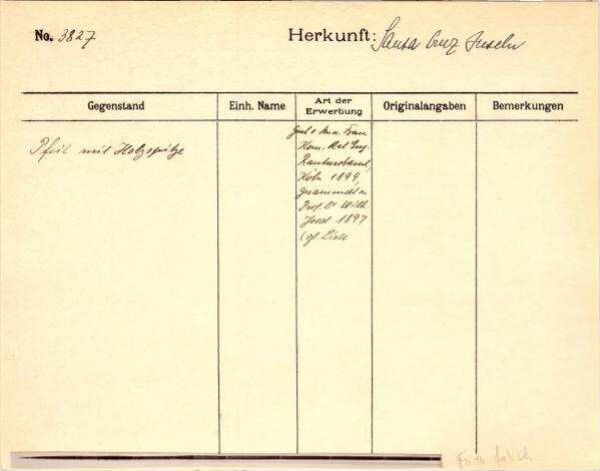 No. 3827
Herkunft: Santa Cruz Inseln
Gegenstand
Einh. Name
Art der
Erwerbung
Originalangaben
Bemerkungen
Pfeil mit Holzspitze
Frau
Kom. Rat Eug.
Rautenstrauch,
Köln 1899,
gesammelt v.
Prof. Dr Wilh.
Joest 1897
Foto falsch